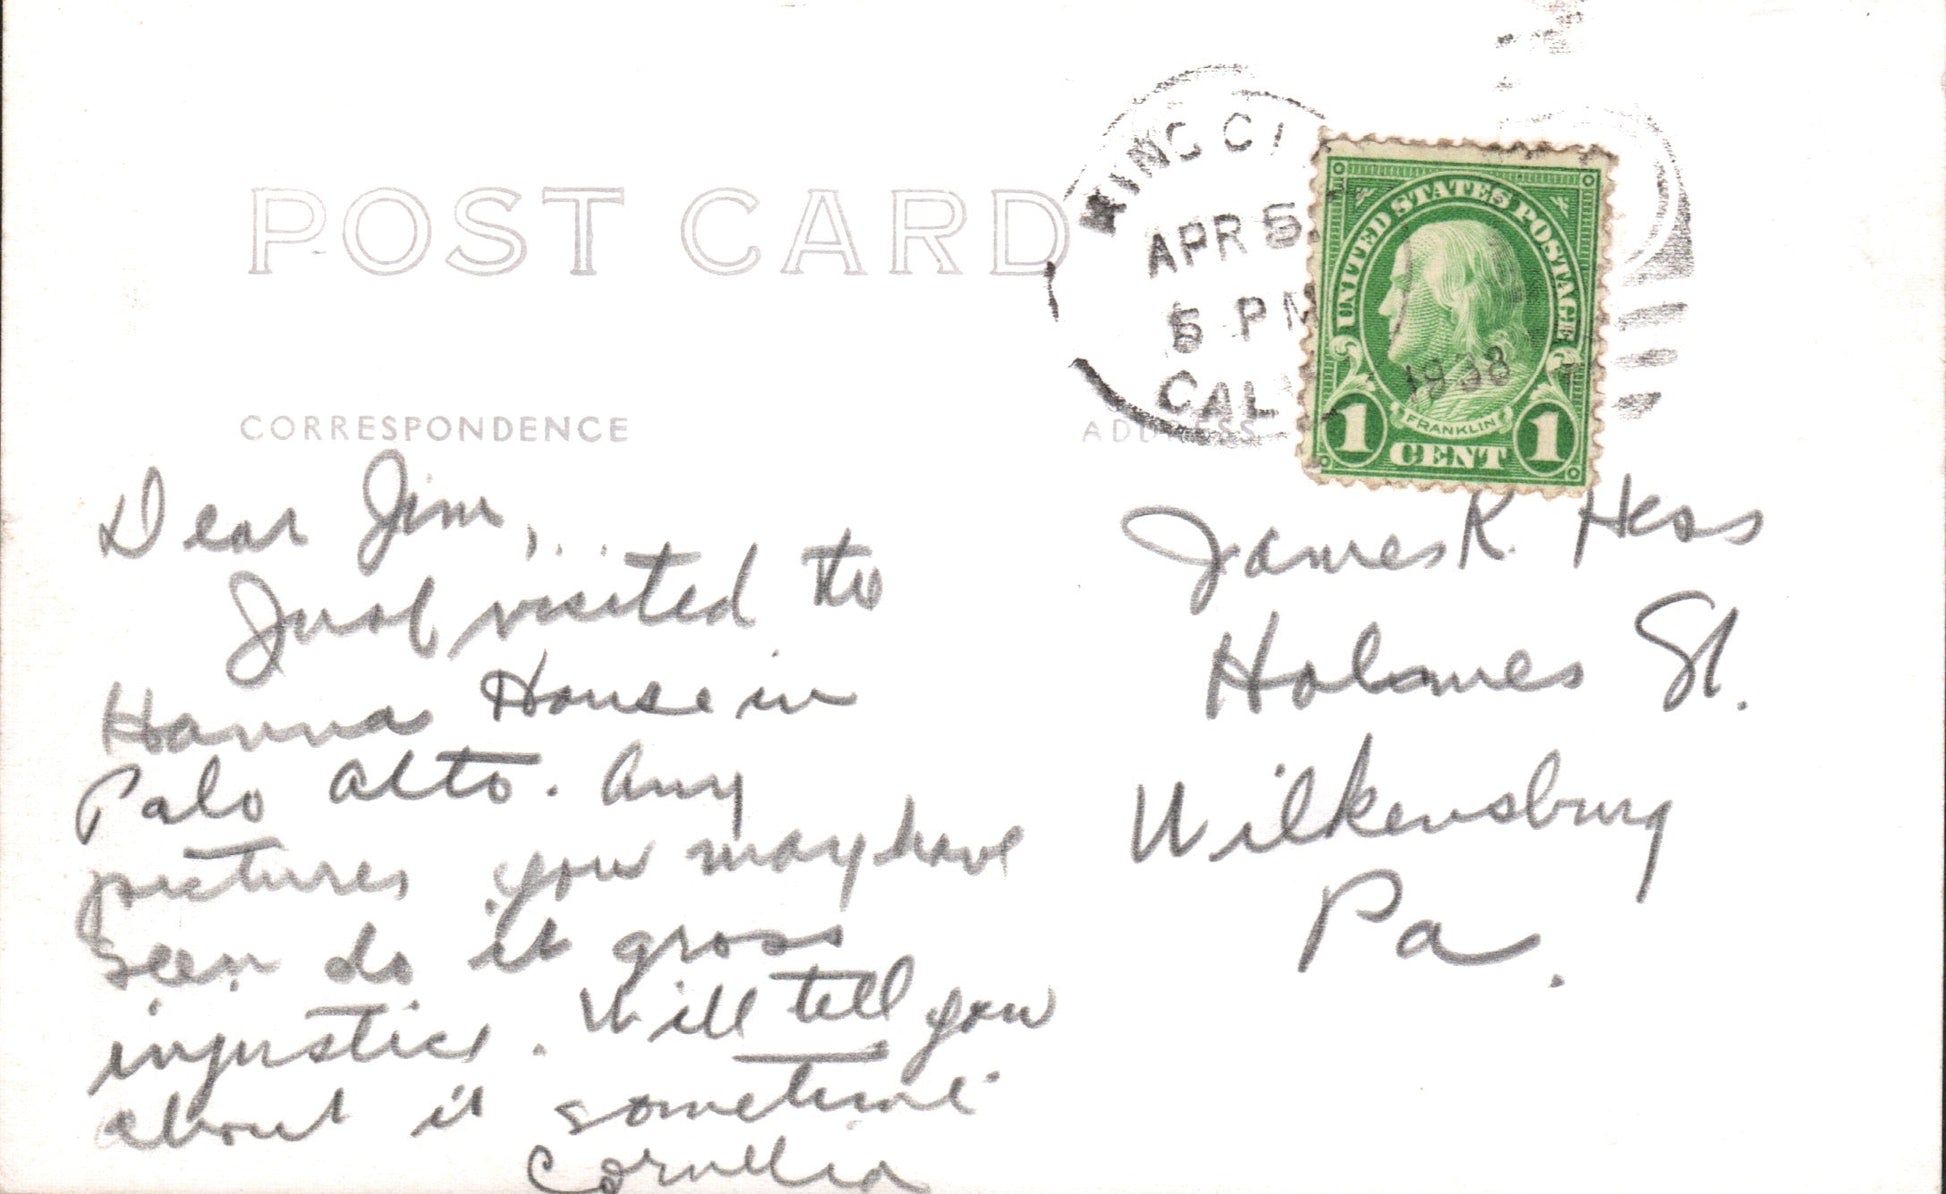 POST CARD
KING CI
APR 5
5 PM
CAL
1938
UNITED STATES POSTAGE
FRANKLIN
1 CENT 1
CORRESPONDENCE
ADDRESS
Dear Jim,
Just visited the
Hanna House in
Palo Alto. Any
pictures you may have
seen do it gross
injustice. Will tell you
about it sometime
Cornelia
James K. Hess
Holmes St.
Wilkensburg
Pa.